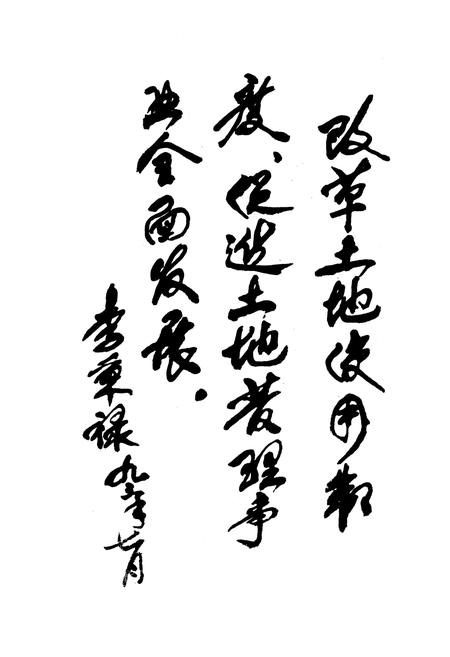 改革土地使用制
度、促进土地管理事
业全面发展。
李秉禄 九三年七月